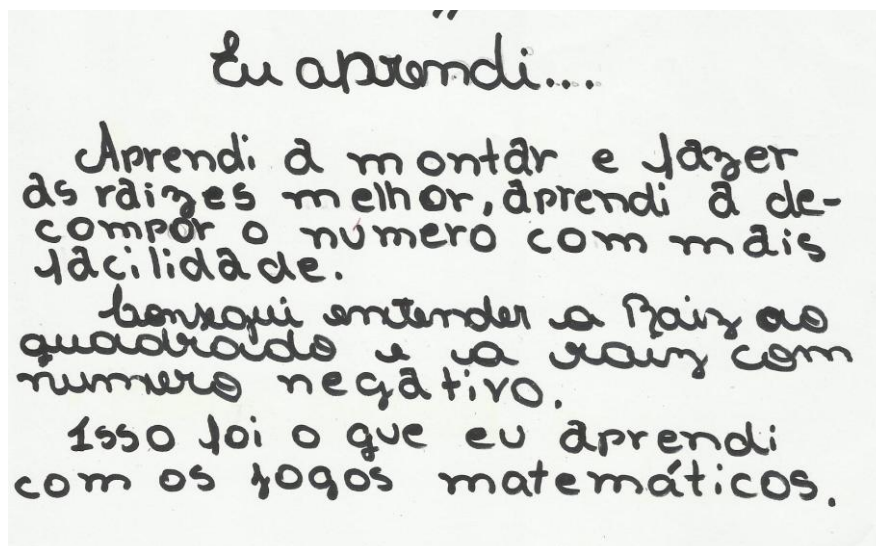 Eu aprendi....
Aprendi a montar e fazer
as raizes melhor, aprendi a de-
compor o número com mais
facilidade.
Consegui entender a Raiz ao
quadrado e a raiz com
numero negativo.
Isso foi o que eu aprendi
com os jogos matemáticos.